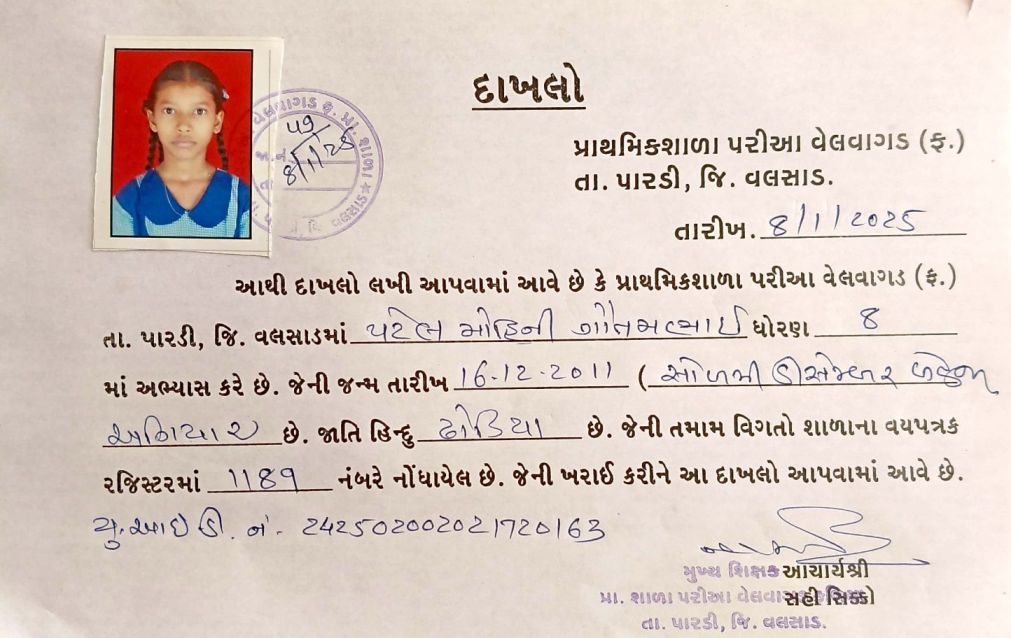 દાખલો
વેલવાગડ ફ. પ્રા. શાળા
જા.નં. ૫૧
તા. 8/1/25
પ્રાથમિકશાળા પરીઆ વેલવાગડ (ફ.)
તા. પારડી, જિ. વલસાડ.
તારીખ. 8/1/2025
આથી દાખલો લખી આપવામાં આવે છે કે પ્રાથમિકશાળા પરીઆ વેલવાગડ (ફ.)
તા. પારડી, જિ. વલસાડમાં પટેલ મોહિની ગૌતમભાઈ ધોરણ 8
માં અભ્યાસ કરે છે. જેની જન્મ તારીખ 16-12-2011 ( સોળમી ડીસેમ્બર બેહજાર
અગિયાર છે. જાતિ હિન્દુ ઢોડિયા છે. જેની તમામ વિગતો શાળાના વયપત્રક
રજિસ્ટરમાં 1189 નંબરે નોંધાયેલ છે. જેની ખરાઈ કરીને આ દાખલો આપવામાં આવે છે.
યુ.આઈ.ડી. નં- 242502002021720163
મુખ્ય શિક્ષક આચાર્યશ્રી
પ્રા. શાળા પરીઆ વેલવા સહી સિક્કો
તા. પારડી, જિ. વલસાડ.